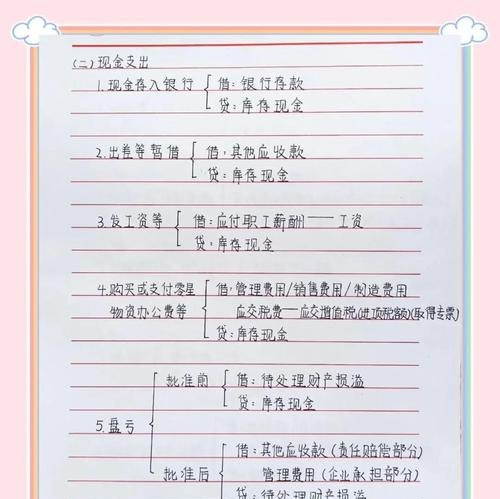 (二)现金支出
1.现金存入银行 借:银行存款
贷:库存现金
2.出差等暂借 借:其他应收款
贷:库存现金
3.发工资等 借:应付职工薪酬——工资
贷:库存现金
4.购买或支付零星 借:管理费用/销售费用/制造费用
物资办公费等 应交税费——应交增值税(进项税额)(取得专票)
贷:库存现金
批准前 借:待处理财产损溢
贷:库存现金
5.盘亏
借:其他应收款(责任赔偿部分)
批准后 管理费用(企业承担部分)
贷:待处理财产损溢